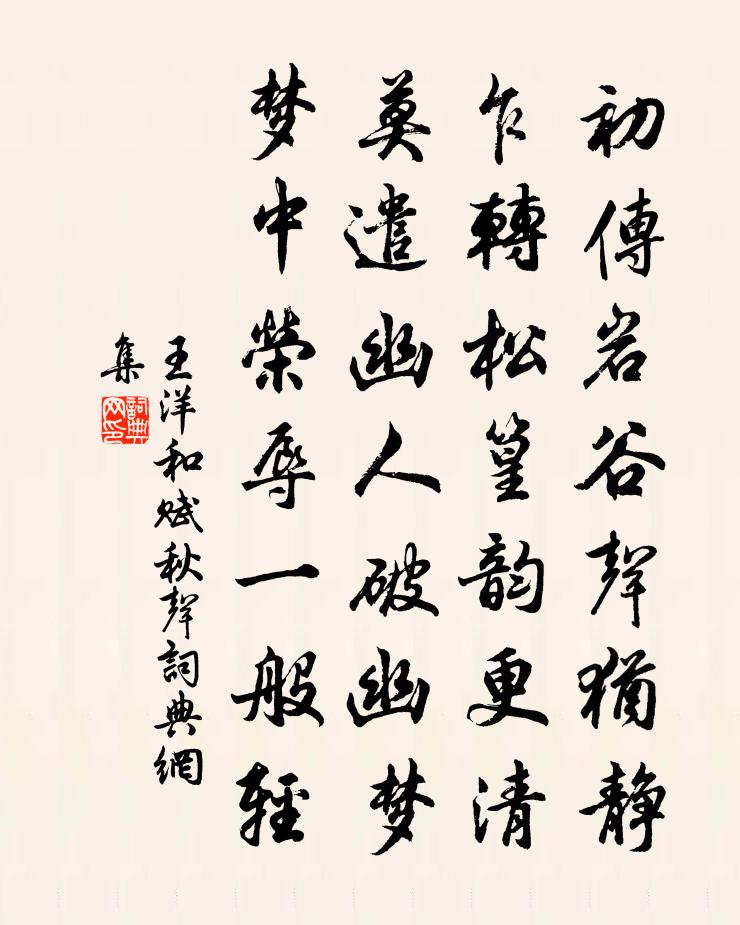 初傳岩谷聲猶静
乍轉松篁韵更清
莫遣幽人破幽梦
梦中榮辱一般輕
王洋和赋秋聲詞典網
集
詞典
网印